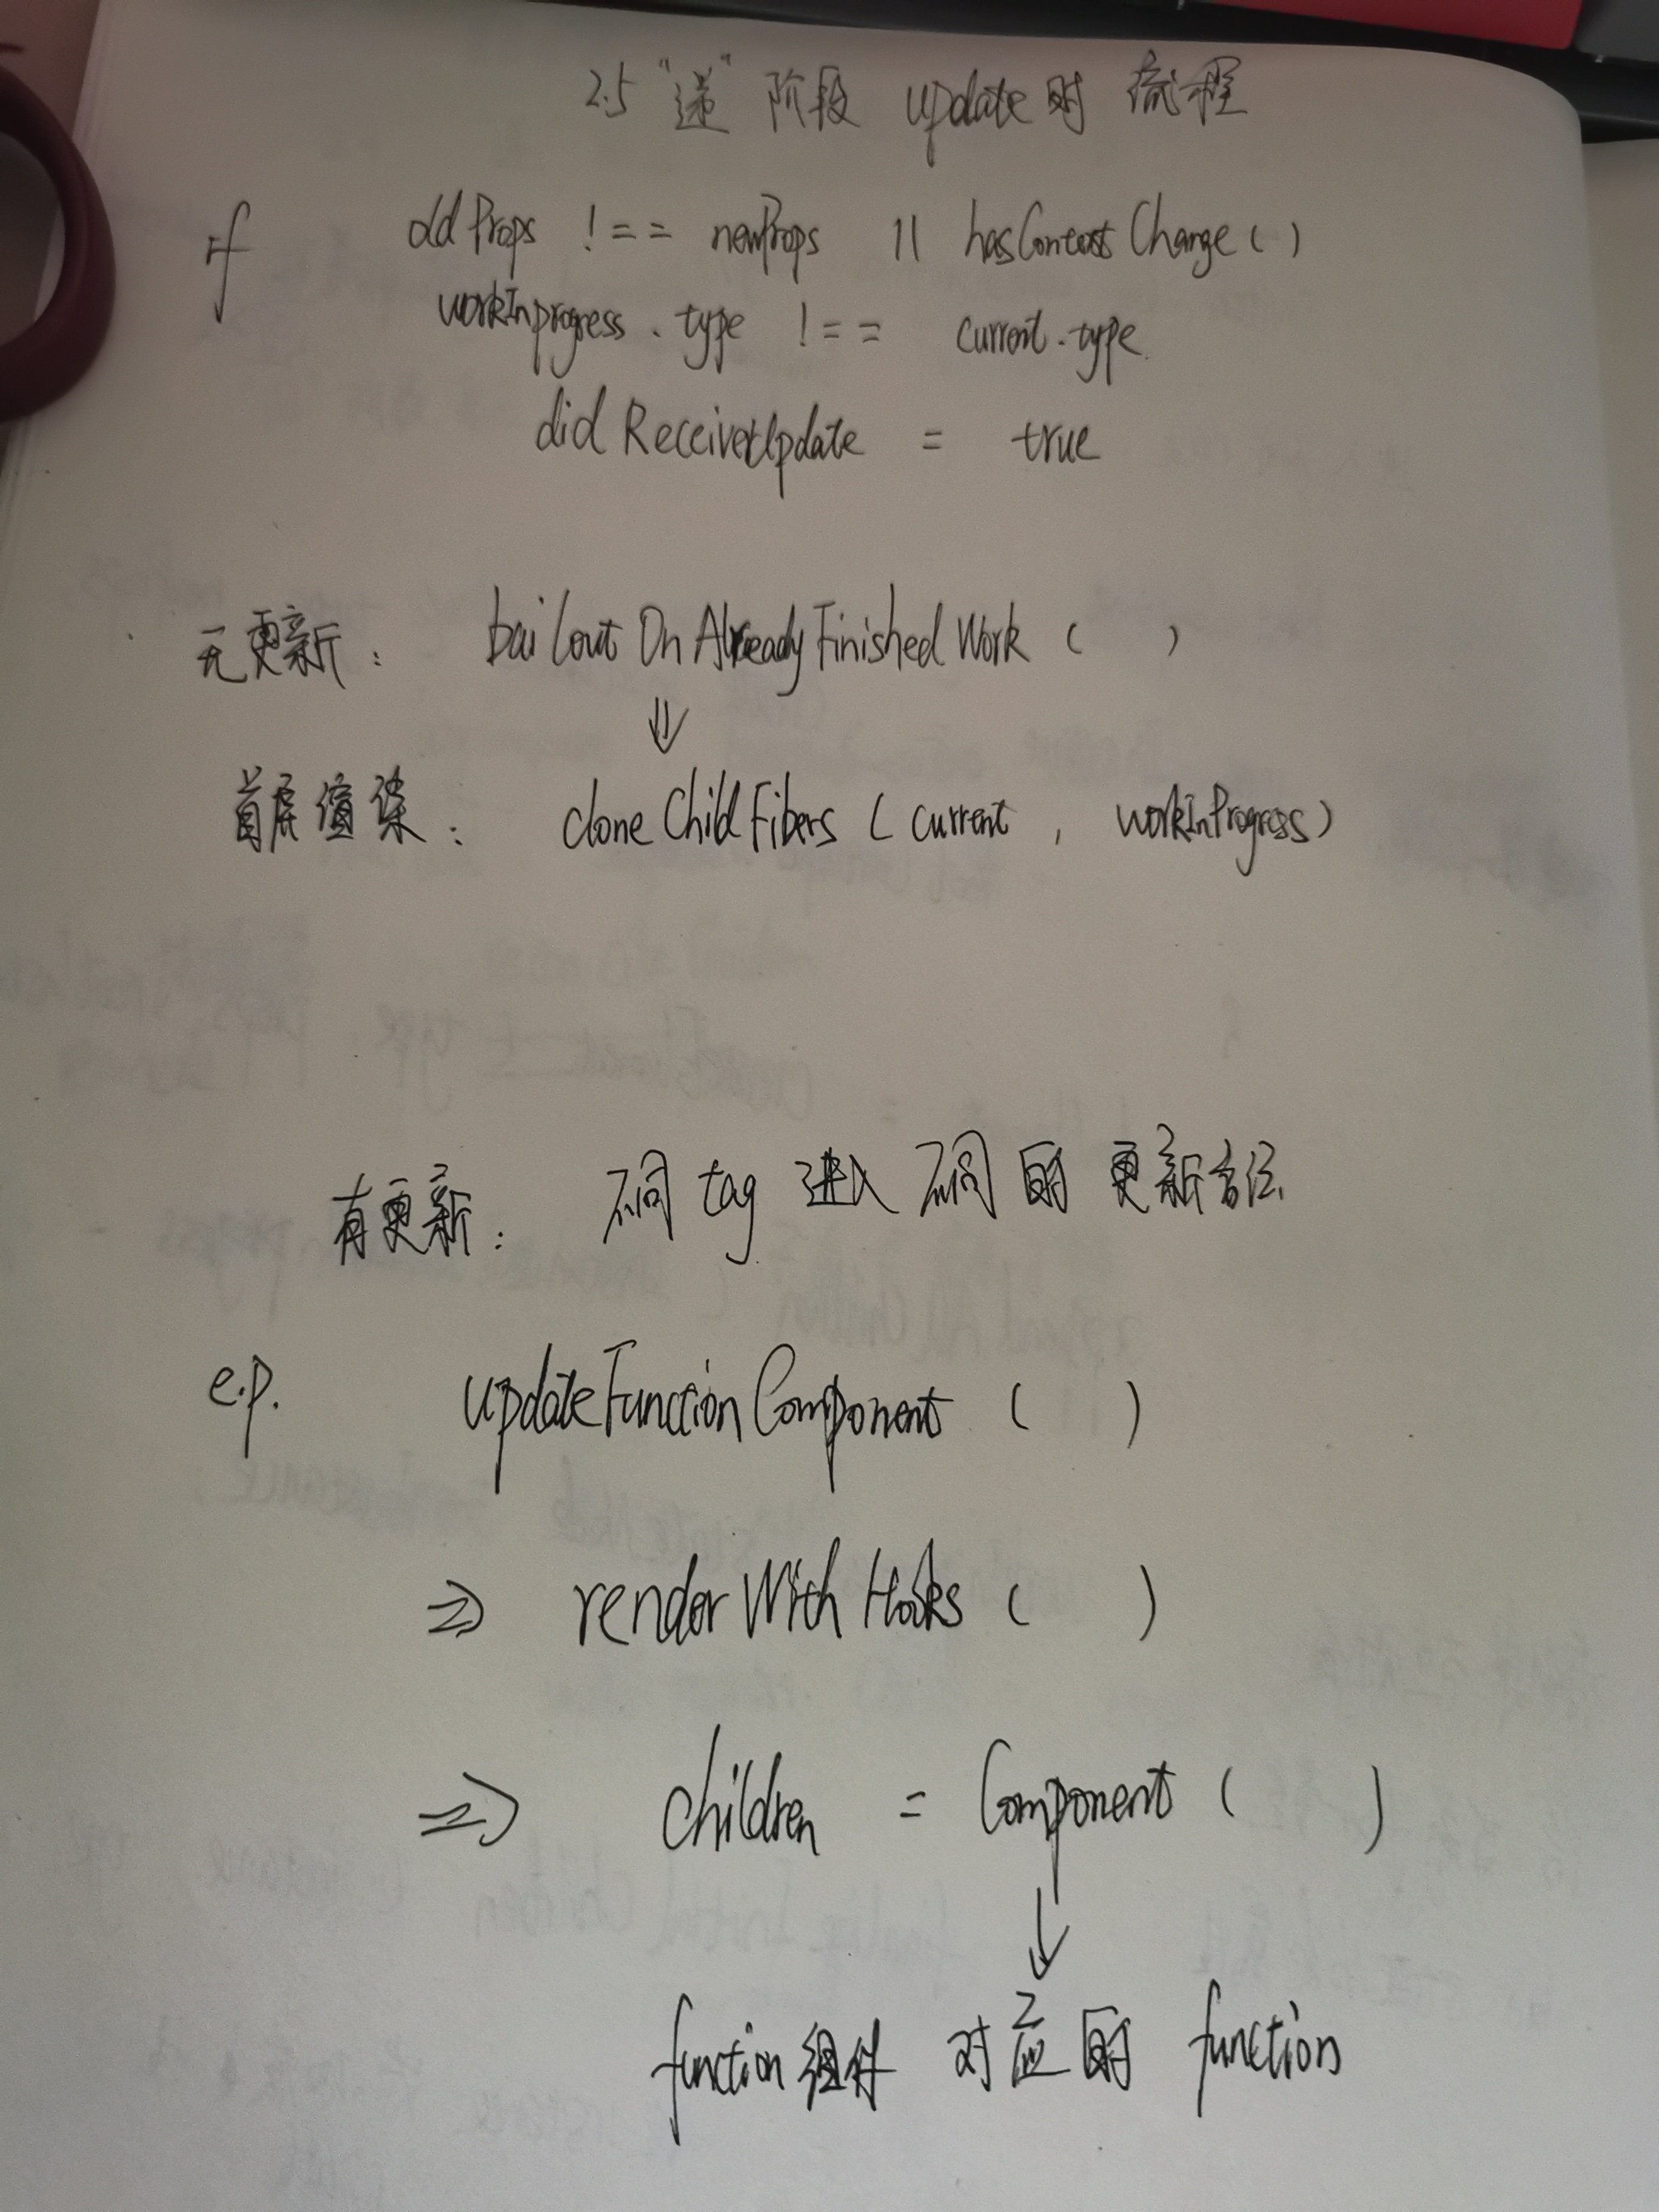 2.5 "递" 阶段 update时 流程
if oldProps !== newProps || hasContextChange()
workInprogress.type !== current.type
didReceiveUpdate = true
无更新: bailoutOnAlreadyFinishedWork ( )
⇓
首屏渲染: cloneChildFibers (current, workInProgress)
有更新: 不同 tag 进入 不同 的 更新方法
e.p. updateFunctionComponent ( )
⇒ renderWithHooks ( )
⇒ children = Component ( )
↓
function组件 对应的 function